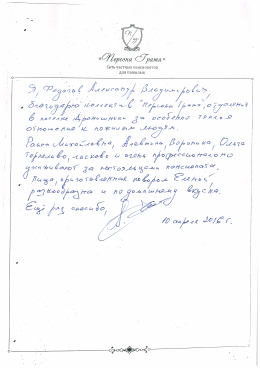 «Перигея Грата»
Сеть частных пансионатов
для пожилых
Я, Федотов Александр Владимирович,
благодарю коллектив
в поселке за особенно теплое
отношение к пожилым людям.
Раиса Михайловна, Алевтина, Вероника, Ольга
терпеливо, ласково и очень профессионально
ухаживают за постояльцами пансионата.
Пища, приготовленная поваром Еленой,
разнообразна и по домашнему вкусна.
Ещё раз спасибо,
10 апреля 2016 г.